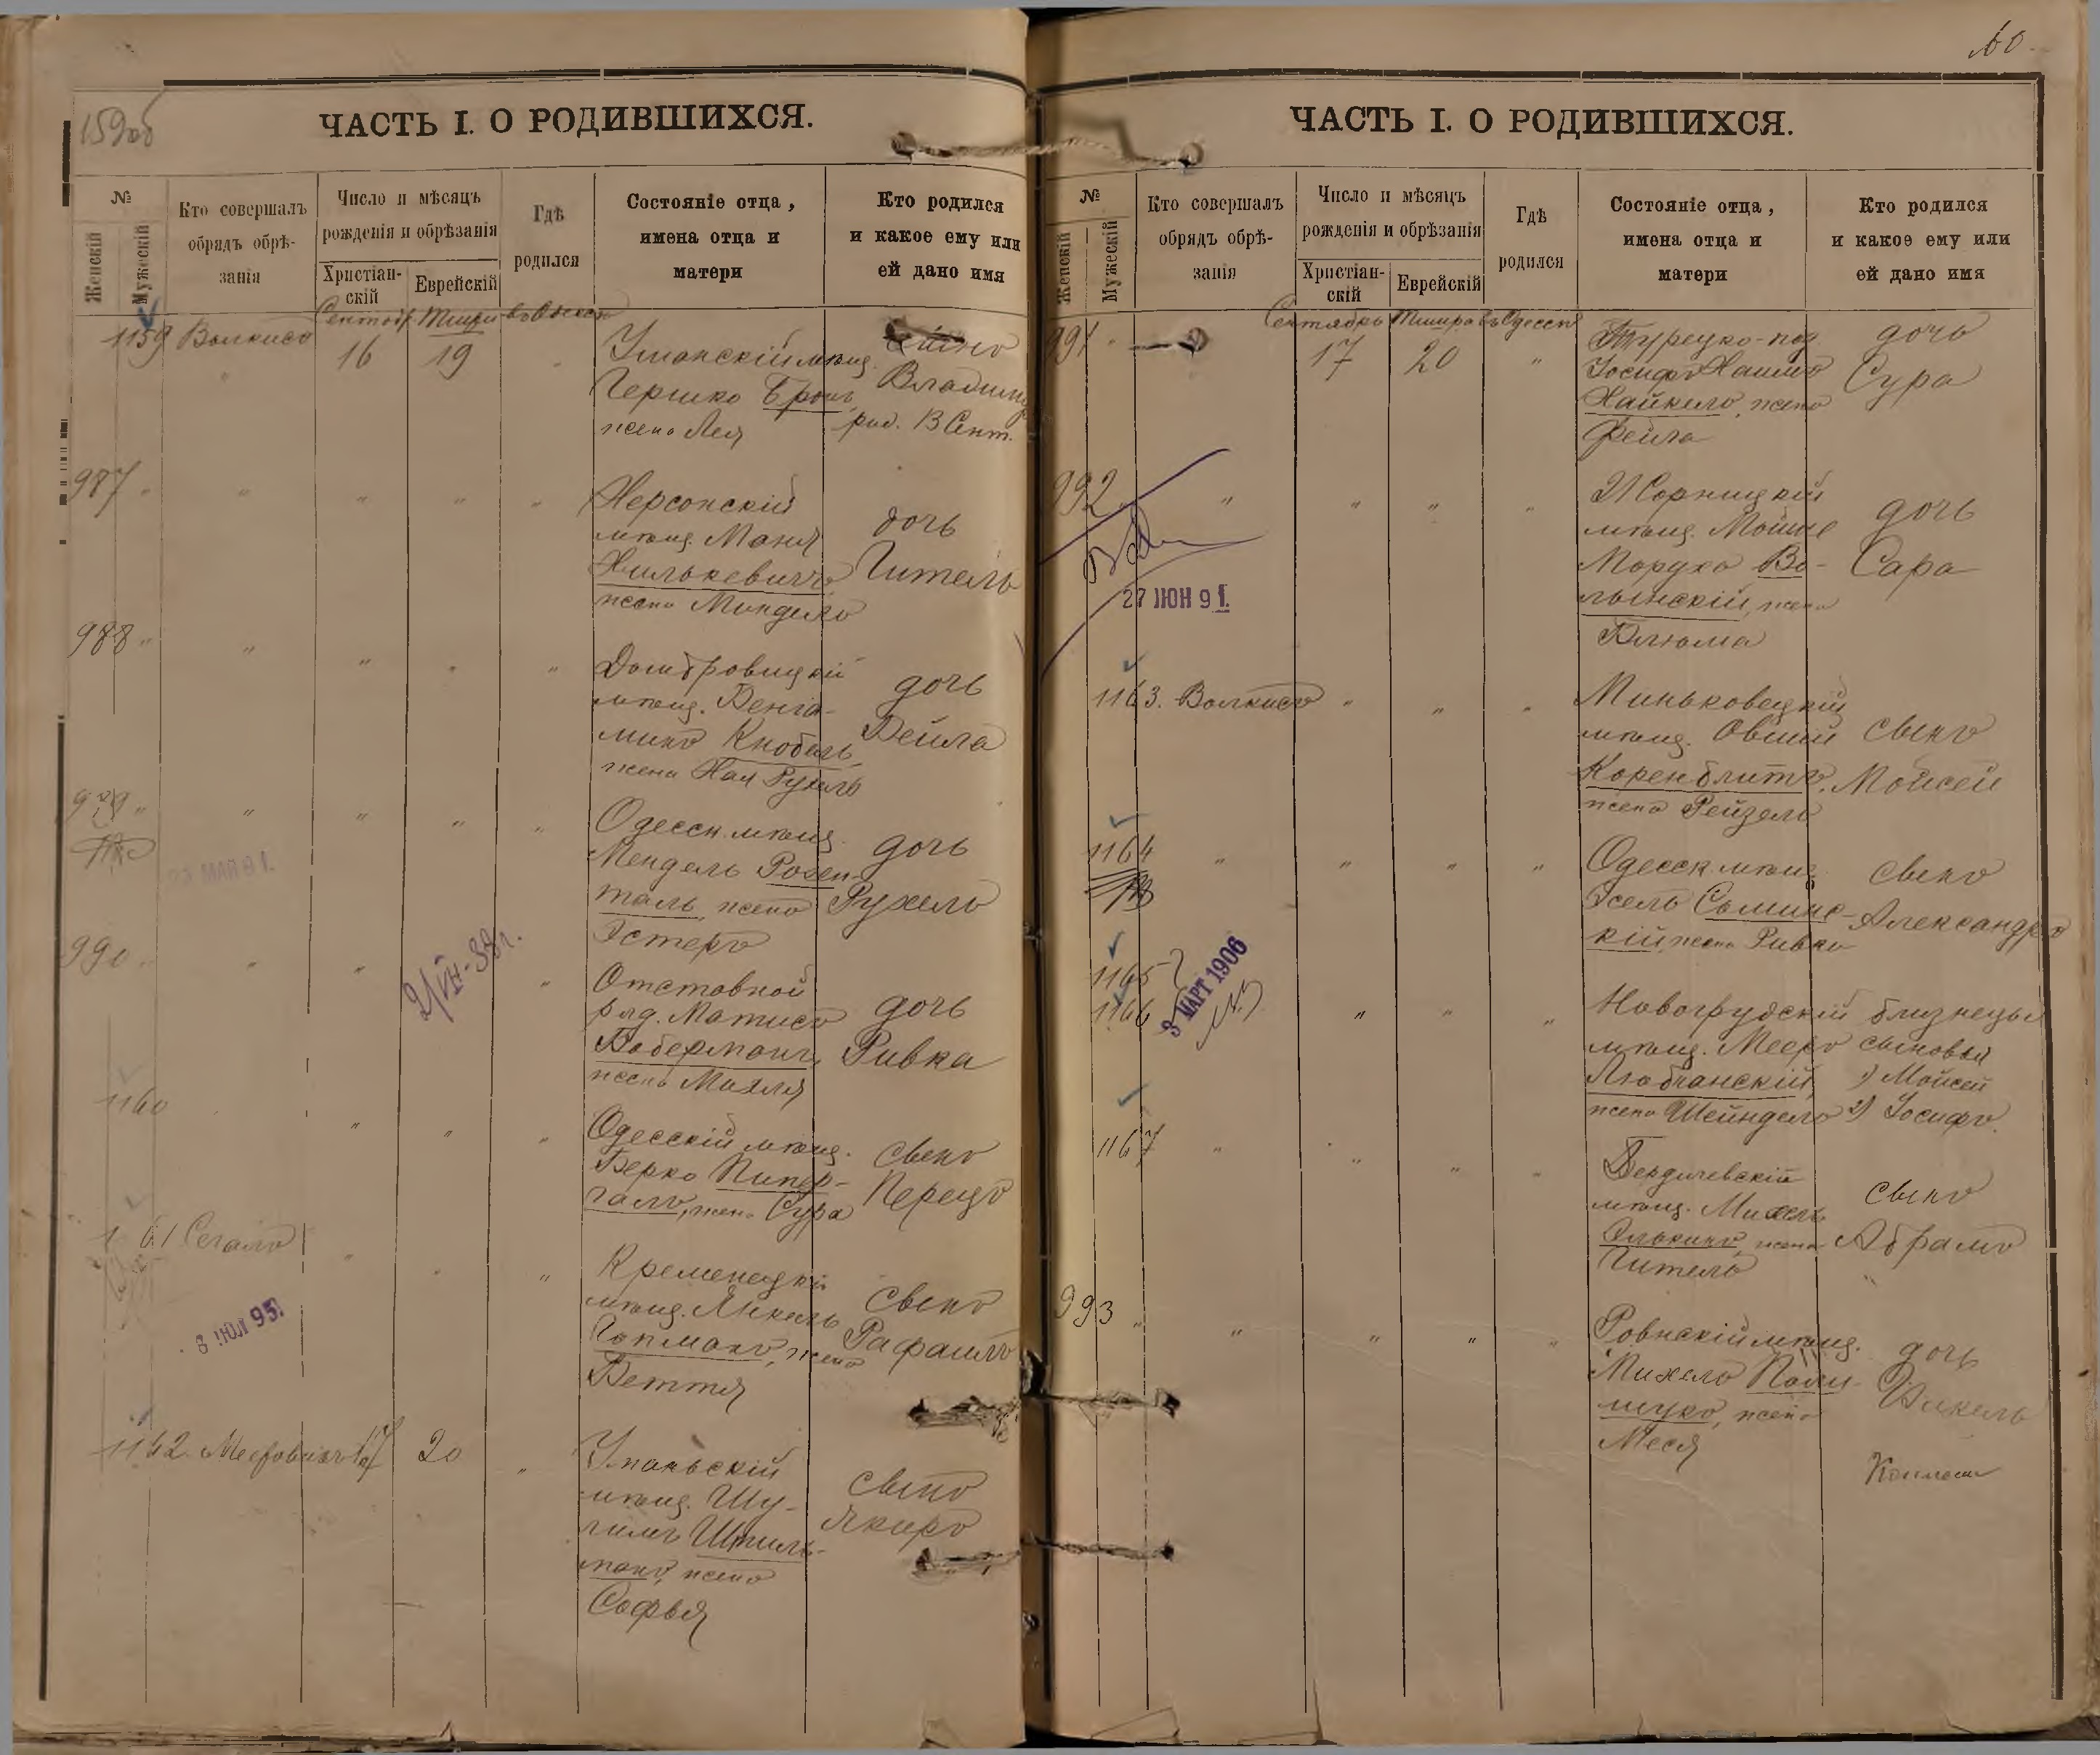 159об
ЧАСТЬ I. О РОДИВШИХСЯ.
№
Женскій
Мужескій
Кто совершалъ
обрядъ обрѣ-
занія
Число и мѣсяцъ
рожденія и обрѣзанія
Христіан-
скій
Еврейскій
Гдѣ
родился
Состояніе отца,
имена отца и
матери
Кто родился
и какое ему или
ей дано имя
Сентябр. Тишри въ Одессѣ
1159 Волкисъ 16 19
Уманскій мѣщ.
Гершко Бронъ,
жена Лея
сынъ
Владимір
род. 13 Сент.
987 " " " " "
Херсонскій
мѣщ. Маня
Хилькевичъ,
жена Миндель
дочь
Гитель
988 " " " " "
Домбровицкій
мѣщ. Бенія-
минъ Кнобель,
жена Хая Рухель
дочь
Бейла
989 " " " " "
23 МАЯ 91.
Одесск. мѣщ.
Мендель Розен-
таль, жена
Эстеръ
дочь
Рухель
990 " " " "
Отставной
ряд. Матисъ
Боберманъ,
жена Махля
дочь
Ривка
1160 " " "
Одесскій мѣщ.
Берко Пипер-
галъ, жена Сура
сынъ
Перецъ
1161 Сегалъ " " "
8 ИЮЛ 95.
Кременецкій
мѣщ. Янкель
Гопманъ, жена
Беття
сынъ
Рафаилъ
1162 Мееровичъ 17 20 "
Уманьскій
мѣщ. Шу-
лимъ Шпиль-
манъ, жена
Софья
сынъ
Якиръ
60.
ЧАСТЬ I. О РОДИВШИХСЯ.
№
Женскій
Мужескій
Кто совершалъ
обрядъ обрѣ-
занія
Число и мѣсяцъ
рожденія и обрѣзанія
Христіан-
скій
Еврейскій
Гдѣ
родился
Состояніе отца,
имена отца и
матери
Кто родился
и какое ему или
ей дано имя
Сентябрь Тишри въ Одессѣ
991 " 17 20 "
Турецко-под.
Іосифъ Хаимъ
Хайкель, жена
Фейга
дочь
Сура
992 " " " "
27 ИЮН 91.
мѣщ. Мойше
Мордко Во-
лынскій, жена
Блюма
дочь
Сара
1163. Волкисъ " " "
Миньковецкій
мѣщ. Овшій
Коренблитъ,
жена Рейзель
сынъ
Мойсей
1164 " " " "
Одесск. мѣщ.
Іосель Сымино-
кій, жена Ривка
сынъ
Александръ
1165
1166 " " "
3 МАРТ 1906
Новогрудскій
мѣщ. Мееръ
Любчанскій,
жена Шейндель
близнецы
сыновья
1) Мойсей
2) Іосифъ.
1167 " " " "
Бердичевскій
мѣщ. Михель
Элькинъ, жена
Гитель
сынъ
Абрамъ
993 " " " " "
Ровнскій мѣщ.
Михель Поли-
щукъ, жена
Меся
дочь